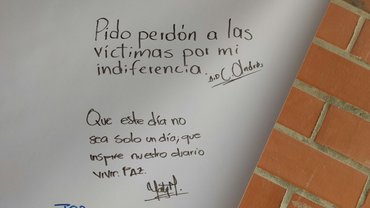 Pido perdón a las
víctimas por mi
indiferencia.
Que este día no
sea solo un día, que
inspire nuestro diario
vivir. PAZ.